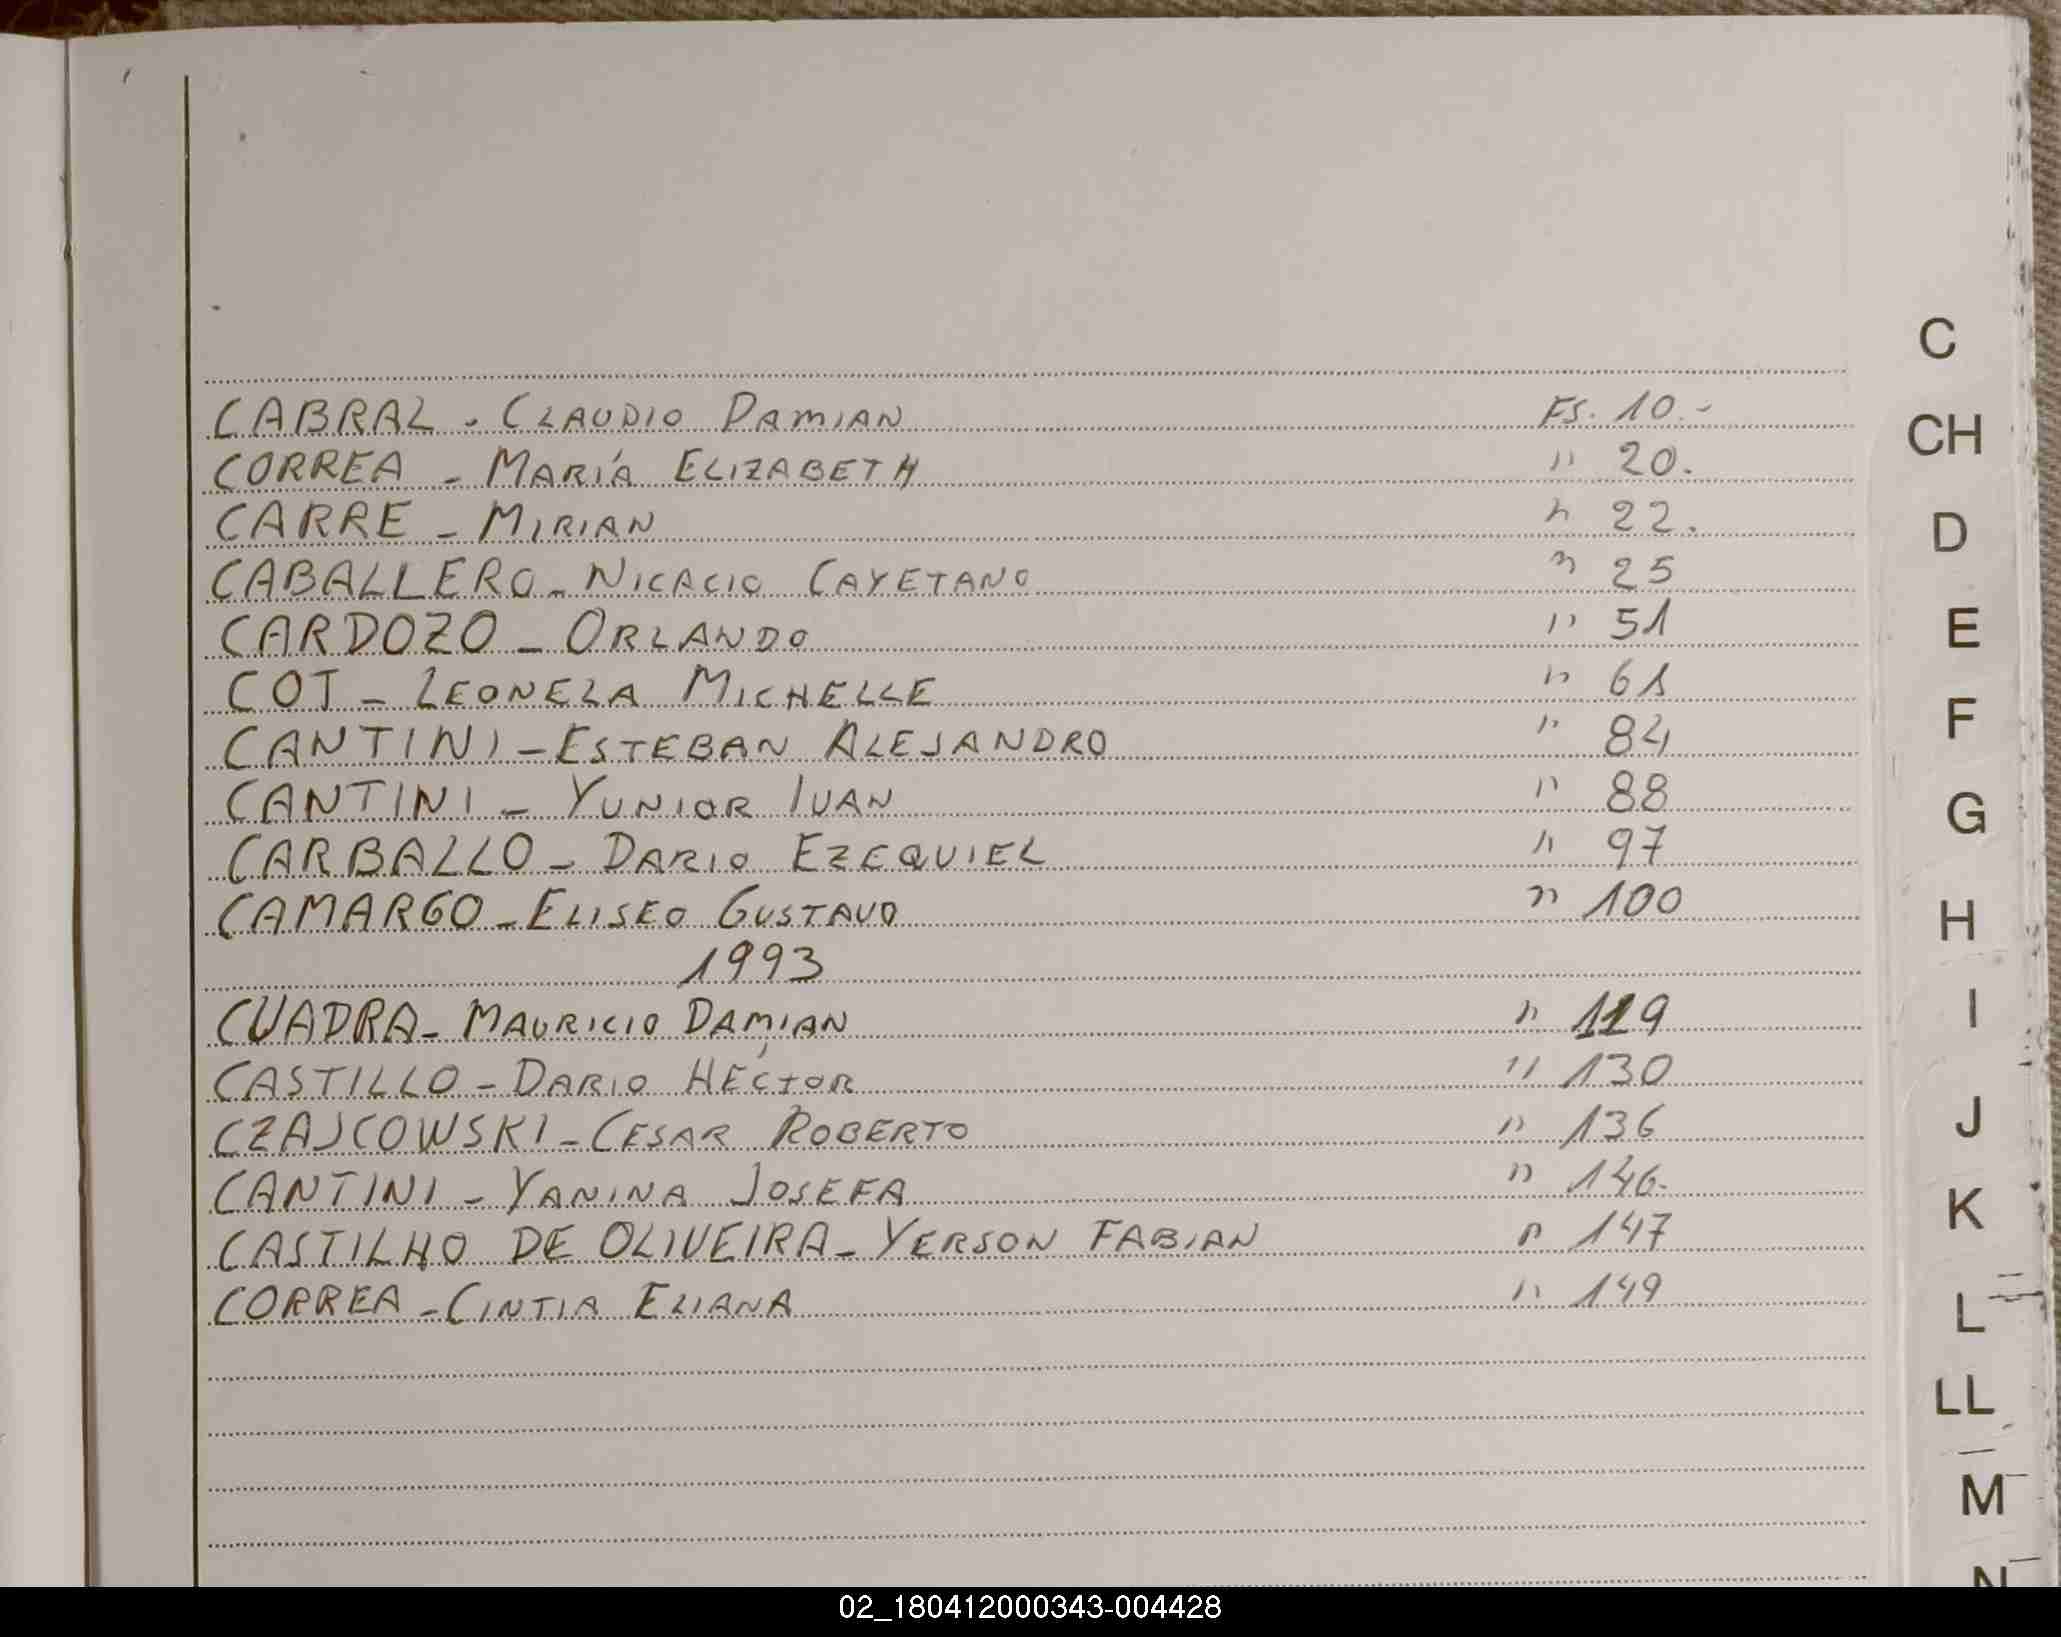 CABRAL - CLAUDIO DAMIAN FS. 10.-
CORREA - MARÍA ELIZABETH " 20.
CARRE - MIRIAN " 22.
CABALLERO - NICACIO CAYETANO " 25
CARDOZO - ORLANDO " 51
COT - LEONELA MICHELLE " 61
CANTINI - ESTEBAN ALEJANDRO " 84
CANTINI - YUNIOR IVAN " 88
CARBALLO - DARIO EZEQUIEL " 97
CAMARGO - ELISEO GUSTAVO " 100
1993
CUADRA - MAURICIO DAMIAN " 119
CASTILLO - DARIO HÉCTOR " 130
CZAJCOWSKI - CESAR ROBERTO " 136
CANTINI - YANINA JOSEFA " 146.
CASTILHO DE OLIVEIRA - YERSON FABIAN " 147
CORREA - CINTIA ELIANA " 149
C
CH
D
E
F
G
H
I
J
K
L
LL
M
N
02_180412000343-004428